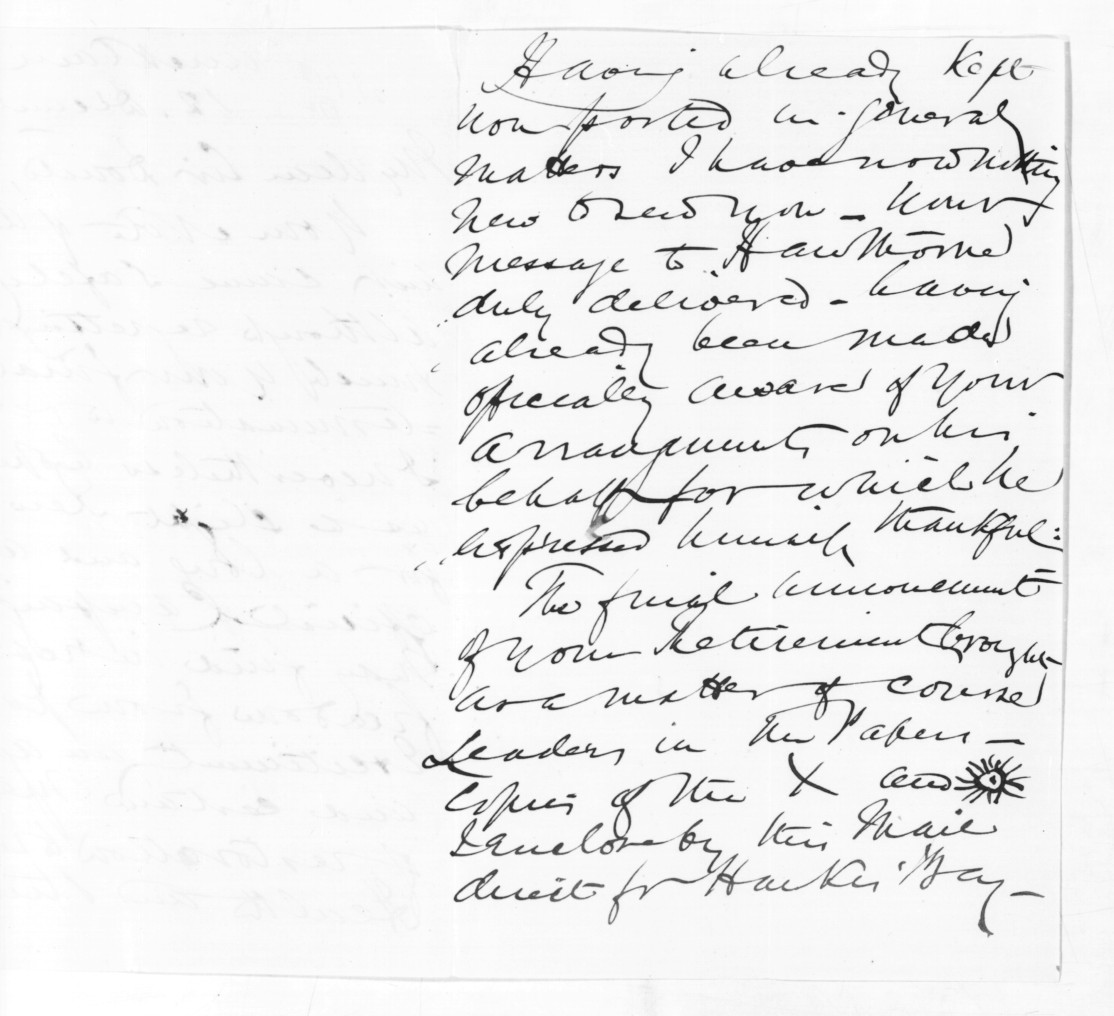 Having already kept
you posted in general
matters I have now nothing
new to send you – your
message to Hawthorne
duly delivered – having
already been made
officially aware of your
arrangements on his
behalf for which he
expressed himself thankful:
The final announcement
of your Retirement brought
as a matter of course
Leaders in the Papers –
copies of the X and
I enclose by this Mail
direct for Hawkes Bay –